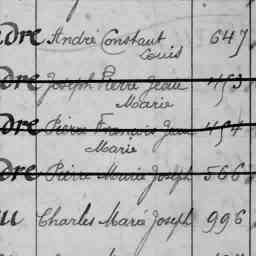 dre André Constant 647
Louis
dre Joseph Pierre Jean 453
Marie
dre Pierre François Jean 454
Marie
dre Pierre Marie Joseph 566
u Charles Marie Joseph 996